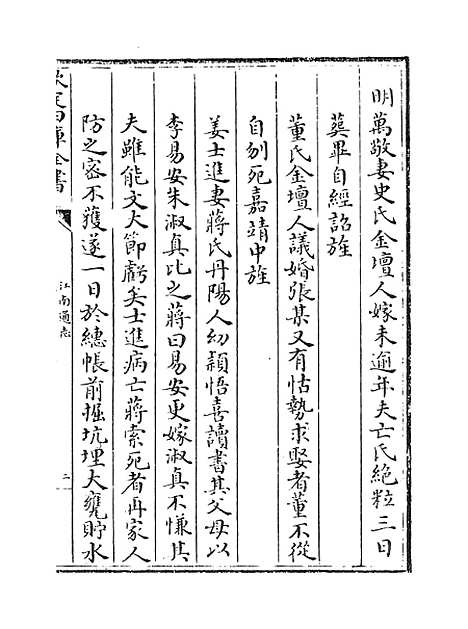 明萬敬妻史氏金壇人嫁未逾年夫亡氏絶粒三日
葬畢自經詔旌
董氏金壇人議婚張某又有怙勢求娶者董不從
自刎死嘉靖中旌
姜士進妻蔣氏丹陽人幼頴悟喜讀書其父母以
李易安朱淑真比之蔣曰易安更嫁淑真不慊其
夫雖能文大節虧矣士進病亡蔣索死者再家人
防之宻不獲遂一日於繐帳前掘坑埋大甕貯水
欽定四庫全書
江南通志
二